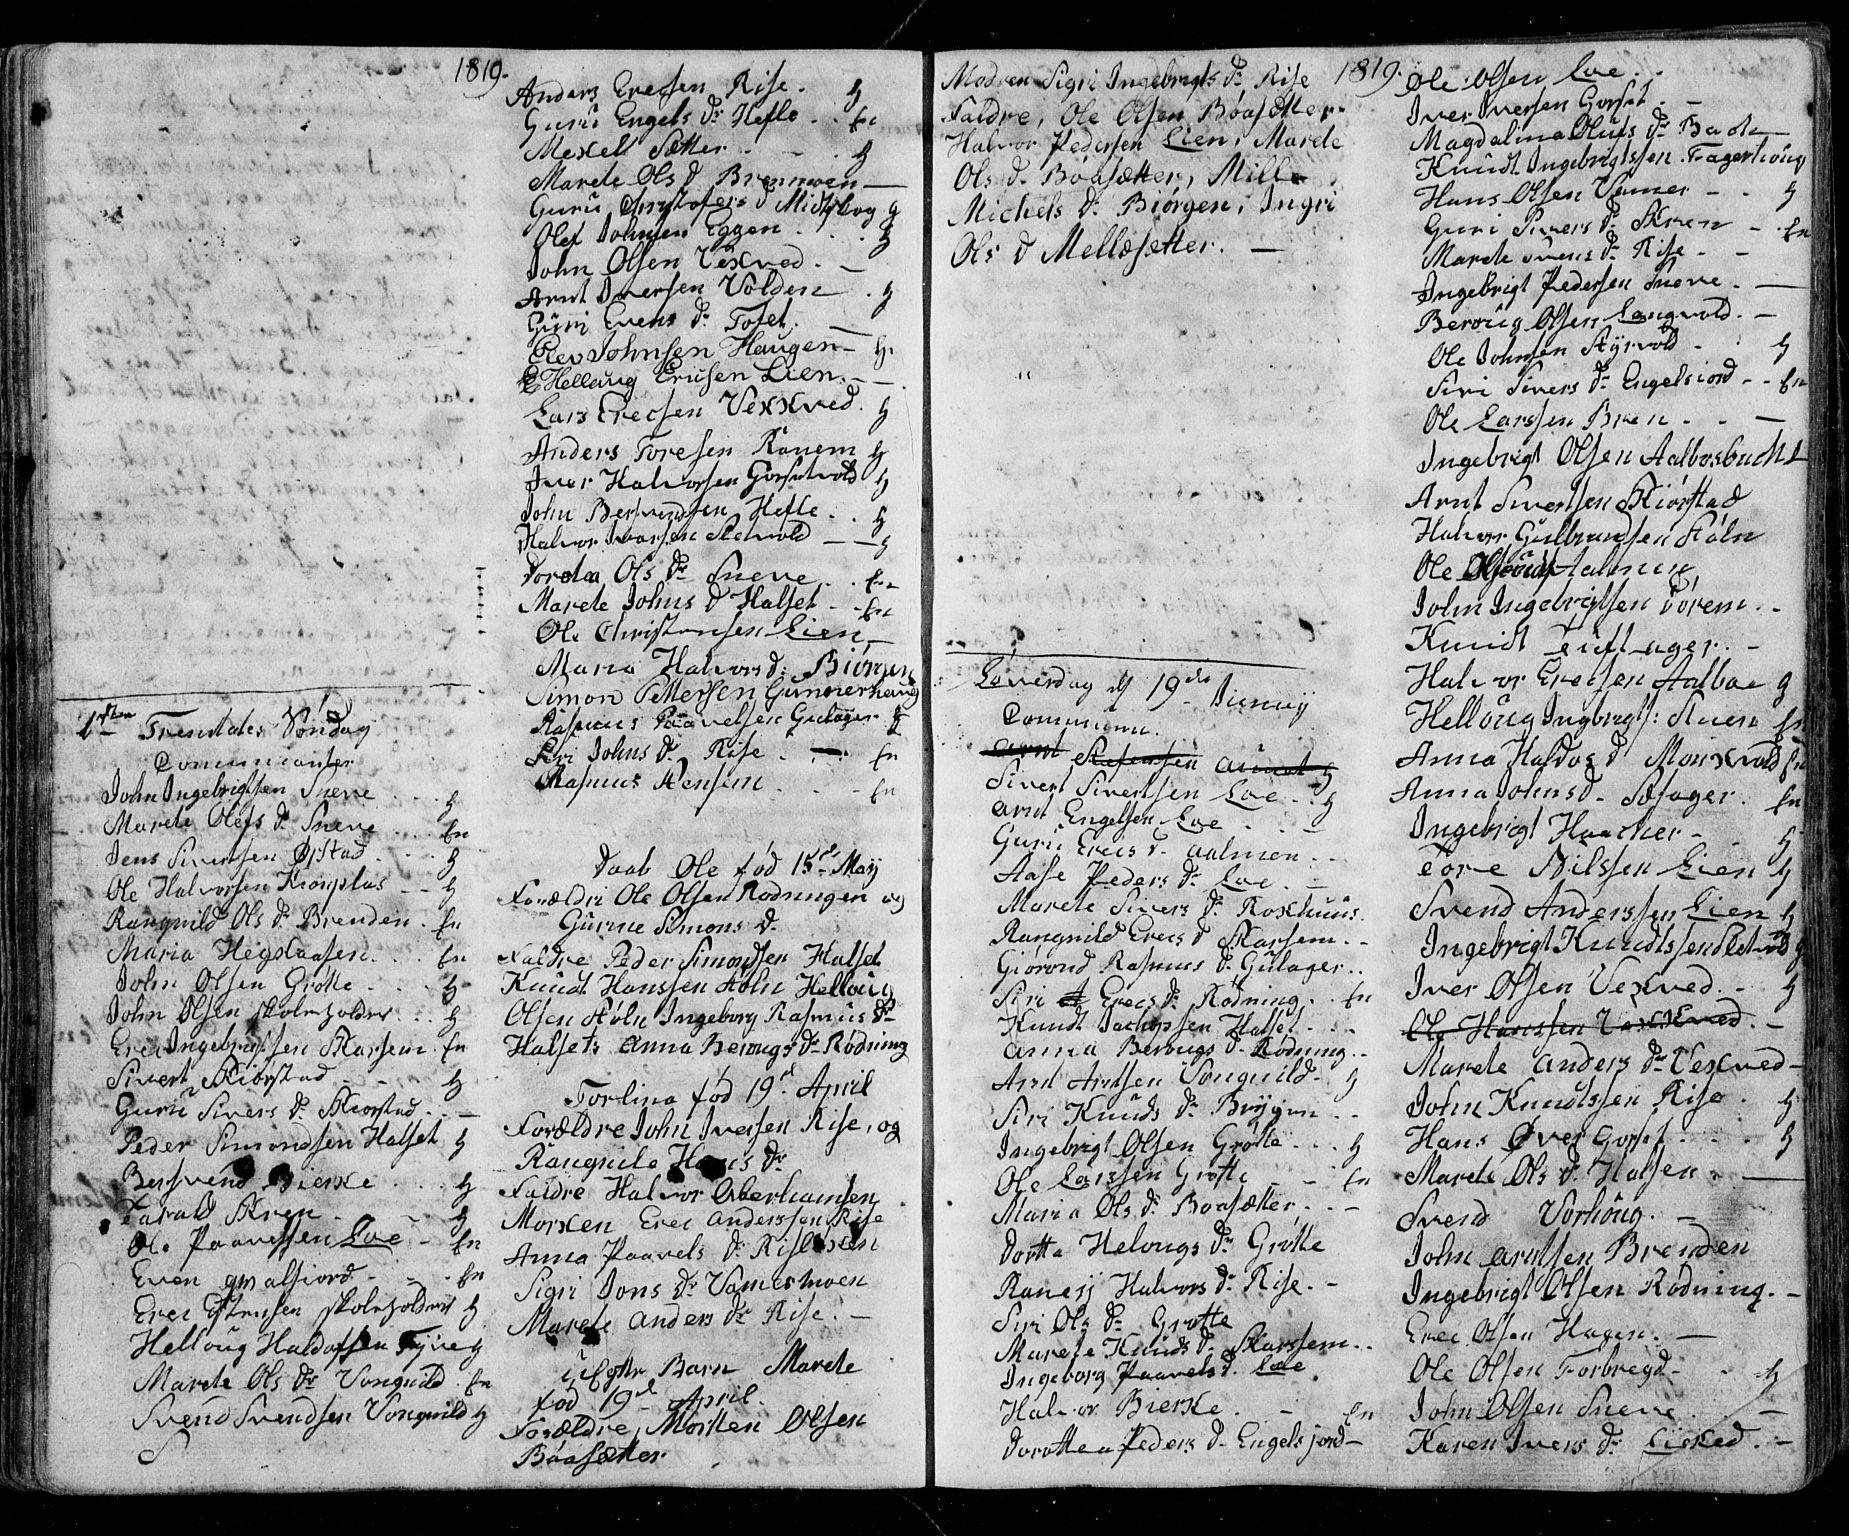 1819.
1ste Trenitates Søndag
Communicanter
John Ingebrigtsen Sneve . . . g
Marete Olefs Dr Sneve . . . En
Jens Siversen Ørstad . . . g
Ole Halvorsen Kronplas - - g
Rangnild Ols Dr Brenden . En
Maria Hegstaasen . . . En
John Olsen Grötte . . . g
John Olsen skoleholder . . . g
Erec Ingebrigtsen Skarsem . En
Sivert Skiörstad - g
Guru Sivers Dr Skiorstad . . -
Peder Simondsen Halset g
Bersvend Bierke . . . g
Tarald Skren - g
Ole Paavelsen Loe - En
Even Gmalsiord - . En
Erec Estensen skoleholder g
Helloug Haldossen g
Marete Ols Dr Vongnild . En
Svend Svendsen Vongnild g
S
Anders Erecsen Rise - g
Guru Engels Dr Hefle . . En
Mekel Sætter - - . g
Marete Ols D Brennmoen —
Guru Christofers D Midtskog g
Olef Johnsen Eggen . . . g
John Olsen Vekved . -
Arnt Iversen Volden . g
Guri Evens Dr Tofet . —
Elev Johnsen Haugen - g
Helloug Ericsen Lien . - -
Lars Erecsen Vekkved . g
Anders Toresen Ranem g
Iver Halvorsen Gorsetvold g
John Bersvendsen Hefle . . g
Halvor Ivarsen Sletvold - - g
Dorotea Ols Dr Sneve . . En
Marete Johns D Halset - En
Ole Christensen Lien -
Maria Halvors Dr Biörgen
Simon Pettersen Gunnerhaug
Rasmus Paavelsen Gulager g
Siri Johns Dr Rise . — . En
Rasmus Hensem . - . - En
Daab Ole fød 15de May
Forældre Ole Olsen Rodningen og
Gurine Simons Dr
Faldre Peder Simondsen Halset
Knudt Hanssen Höln Helloug
Olsen Höln Ingeborg Rasmus Dr
Halsets Anna Berougs Dr Rödning
Torlina fød 19d April
Forældre John Iversen Rise, og
Rangnile Hans Dr
Faldre Halvor Oberhamsen
Morken Erec Anderssen Rise
Anna Paavels Dr
Sigri Jons Dr Vameshmoen
Marete Anders Dr Rise . -
Uægte Barn Marete
fød 19d April.
Forældre, Morten Olsen
Böasætter
Modren Sigri Ingebrigts Dr Rise 1819.
Faldre, Ole Olsen Böasætter.
Halvor Pedersen Lien, Marete
Ols Dr Böasætter, Mille
Michels Dr Biörgen, Ingri
Ols D Mellosætter. —
Löverdag D 19de Juny
Communu.
Arnt Aunet g
Sivert Sivertsen Loe . . g
Arnt Engelsen Loe . . -
Guru Erecs D. Aalmen . .
Aase Peders Dr Loe . -
Marete Sivers Dr Rokhuus.
Rangnild Erecs D Skarsem . .
Giörond Rasmus D. Gulager . .
Siri Erecs Dr Rödning . . En
Knudt Jachopsen Halset . . .
Anna Berougs D. Rödning . .
Arnt Arntsen Vongnild - g
Siri Knuds Dr Bryggen . .
Ingebrigt Olsen Grötte . . . g
Ole Larssen Grötte - - En
Maria Ols Dr Böasætter . . -
Dortta Helougs Dr Grötte
Ranesj Halvors Dr Rise . -
Siri Ols Dr Grötte
Marete Knuds Dr Skarssem . .
Ingeborg Paavels D. Loe .
Halvor Bierke . - En
Dorottea Peders D. Engelsjord -
Ole Olsen Loe . .
Iver Iversen Gorset . -
Magdalina Olufs Dr Bade
Knudt Ingebrigtssen Fagerhoug
Hans Olsen Vamer - . g
Guri Sivers Dr Skren - . En
Marete Svens Dr Rise - -
Ingebrigt Pedersen Sneve . —
Beroug Olsen Langvold . -
Ole Johnsen Styrvold - . g
Siri Sivers Dr Engelsiord - - En
Ole Larssen Bren . . . —
Ingebrigt Olsen Aalbosbucht
Arnt Sivertsen Skiörstad
Halvor Gulbrandsen Höln
Ole Aalmen
John Ingebrigtsen Dörem . .
Knudt Luftager . -
Halvor Erecsen Aalboe g
Helloug Ingbrigts: Stuen En
Anna Haldos D Monkvold En
Anna Johns D. Sæsager . En
Ingebrigt Haacker - g
Tore Nilssen Lien g
Svend Anderssen Lien g
Ingebrigt Knudtssen Sletvold g
Iver Olsen Vekved . - g
Ole Hanssen Vekkved . -
Marete Anders Dr Vekved -
John Knudtssen Rise . g
Hans Øver Gorset . . . g
Marete Ols Dr Halsen . —
Svend Vorhoug . -
John Arntsen Brenden
Ingebrigt Olsen Rödning . -
Erec Olsen Hagen . —
Ole Olsen Forbregd - . g
John Olsen Sneve . -
Karen Ivers Dr . -